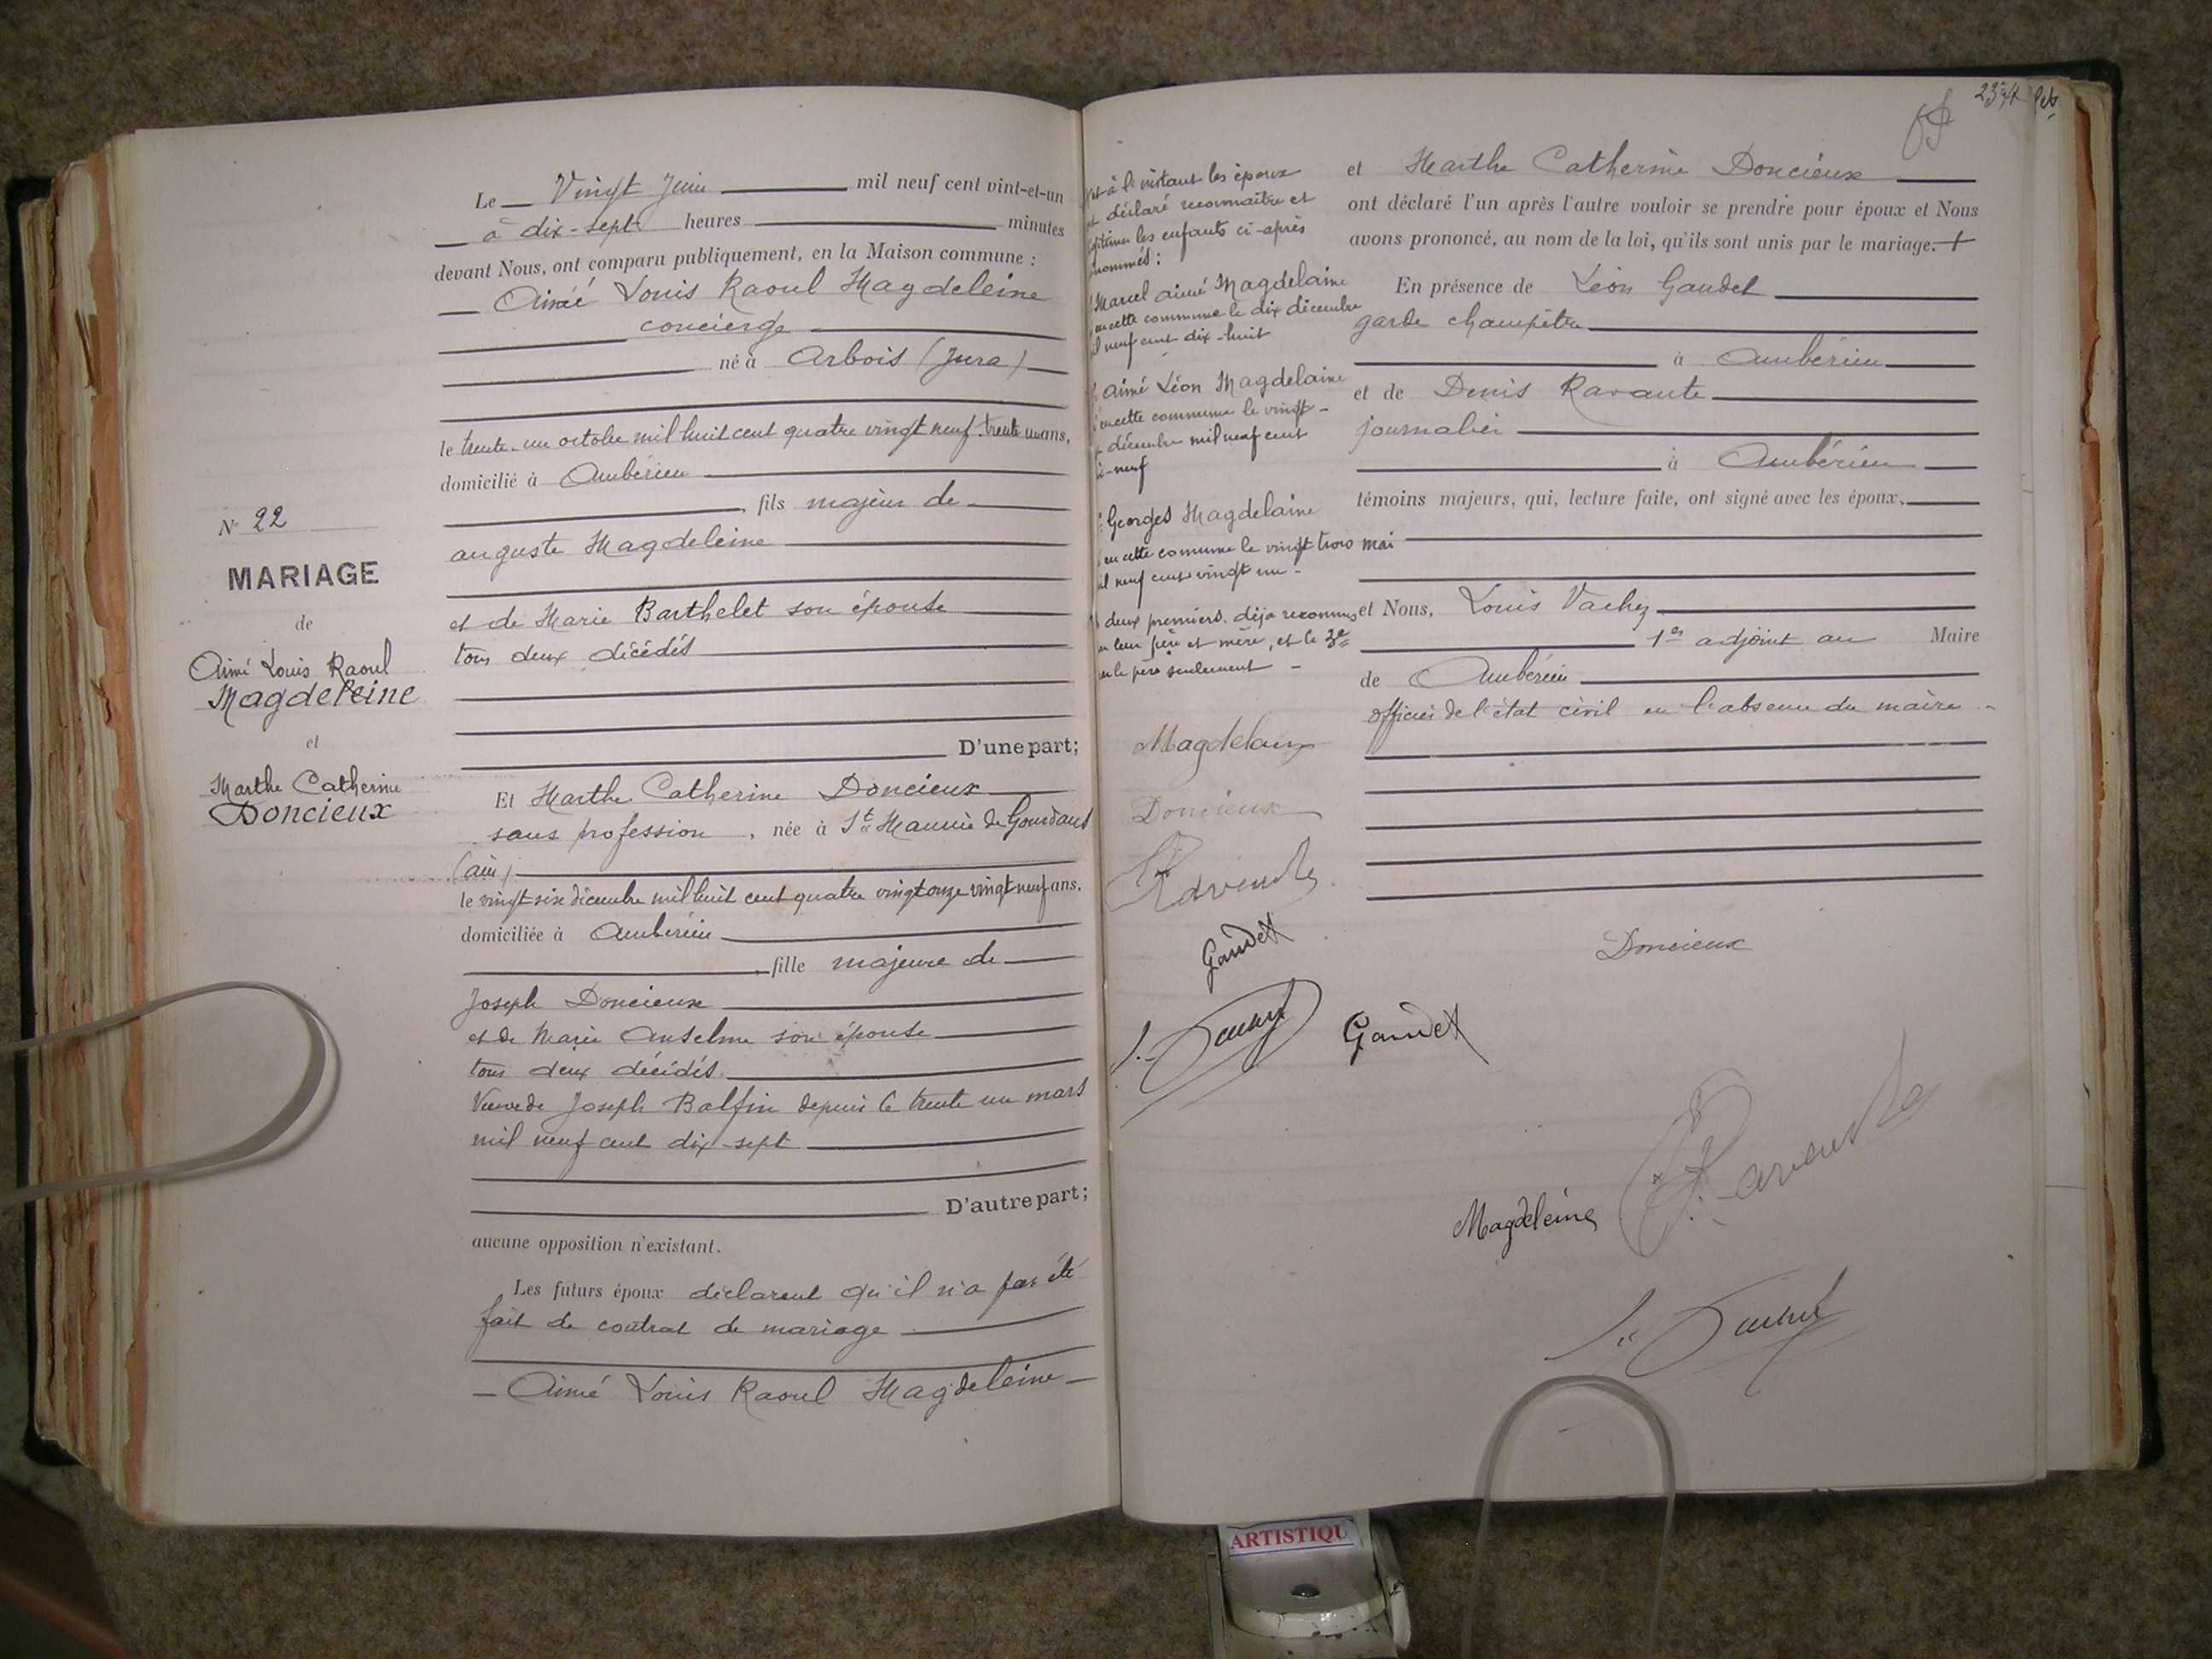 Le Vingt Juin mil neuf cent vint-et-un
à dix-sept heures minutes
devant Nous, ont comparu publiquement, en la Maison commune :
Aimé Louis Raoul Magdeleine
concierge
né à Arbois (Jura)
le trente-un octobre mil huit cent quatre vingt neuf. trente un ans,
domicilié à Ambérieu
, fils majeur de
auguste Magdeleine
et de Marie Barthelet son épouse
tous deux décédés
D'une part;
Nº 22
MARIAGE
de
Aimé Louis Raoul
Magdeleine
et
Marthe Catherine
Doncieux
Et Marthe Catherine Doncieux
sans profession , née à St Maurice de Gourdans
(ain)
le vingt six décembre mil huit cent quatre vingt onze vingt neuf ans.
domiciliée à Ambérieu
, fille majeure de
Joseph Doncieux
et de Marie Anselme son épouse
tous deux décédés.
Veuve de Joseph Balfin depuis le trente un mars
mil neuf cent dix-sept
D'autre part;
aucune opposition n'existant.
Les futurs époux déclarent qu'il n'a pas été
fait de contrat de mariage
Aimé Louis Raoul Magdeleine
et à l'instant les époux
déclaré reconnaître et
les enfants ci-après
nommés :
Marcel aimé Magdelaine
en cette commune le dix décembre
neuf cent dix-huit
aimé Léon Magdelaine
en cette commune le vingt-
décembre mil neuf cent
-neuf
Georges Magdelaine
en cette comune le vingt trois mai
neuf cent vingt un -
deux premiers déja reconnus
leur père et mère, et le 3e
le père seulement -
Magdelaine
Doncieux
Ravente
Gaudet
et Marthe Catherine Doncieux
ont déclaré l'un après l'autre vouloir se prendre pour époux et Nous
avons prononcé, au nom de la loi, qu'ils sont unis par le mariage. +
En présence de Léon Gaudet
garde champêtre
à Ambérieu
et de Denis Ravante
journalier
à Ambérieu
témoins majeurs, qui, lecture faite, ont signé avec les époux.
et Nous, Louis Vachez
1er adjoint au Maire
de Ambérieu
officier de l'état civil en l'absence du maire
Doncieux
Gaudet
Ravante
Magdeleine
ARTISTIQU